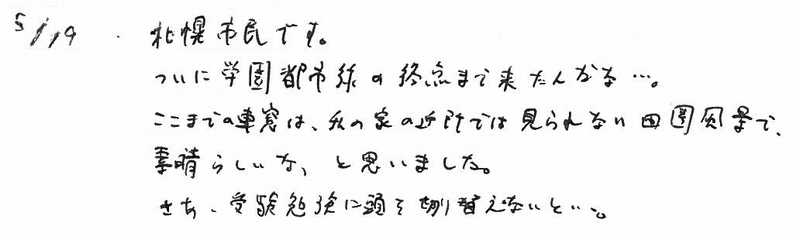 5/19 . 札幌市民です。
ついに学園都市線の終点まで来たんだな…。
ここまでの車窓は、私の家の近所では見られない田園風景で、
素晴らしいな、と思いました。
さあ、受験勉強に頭を切り替えないと…。